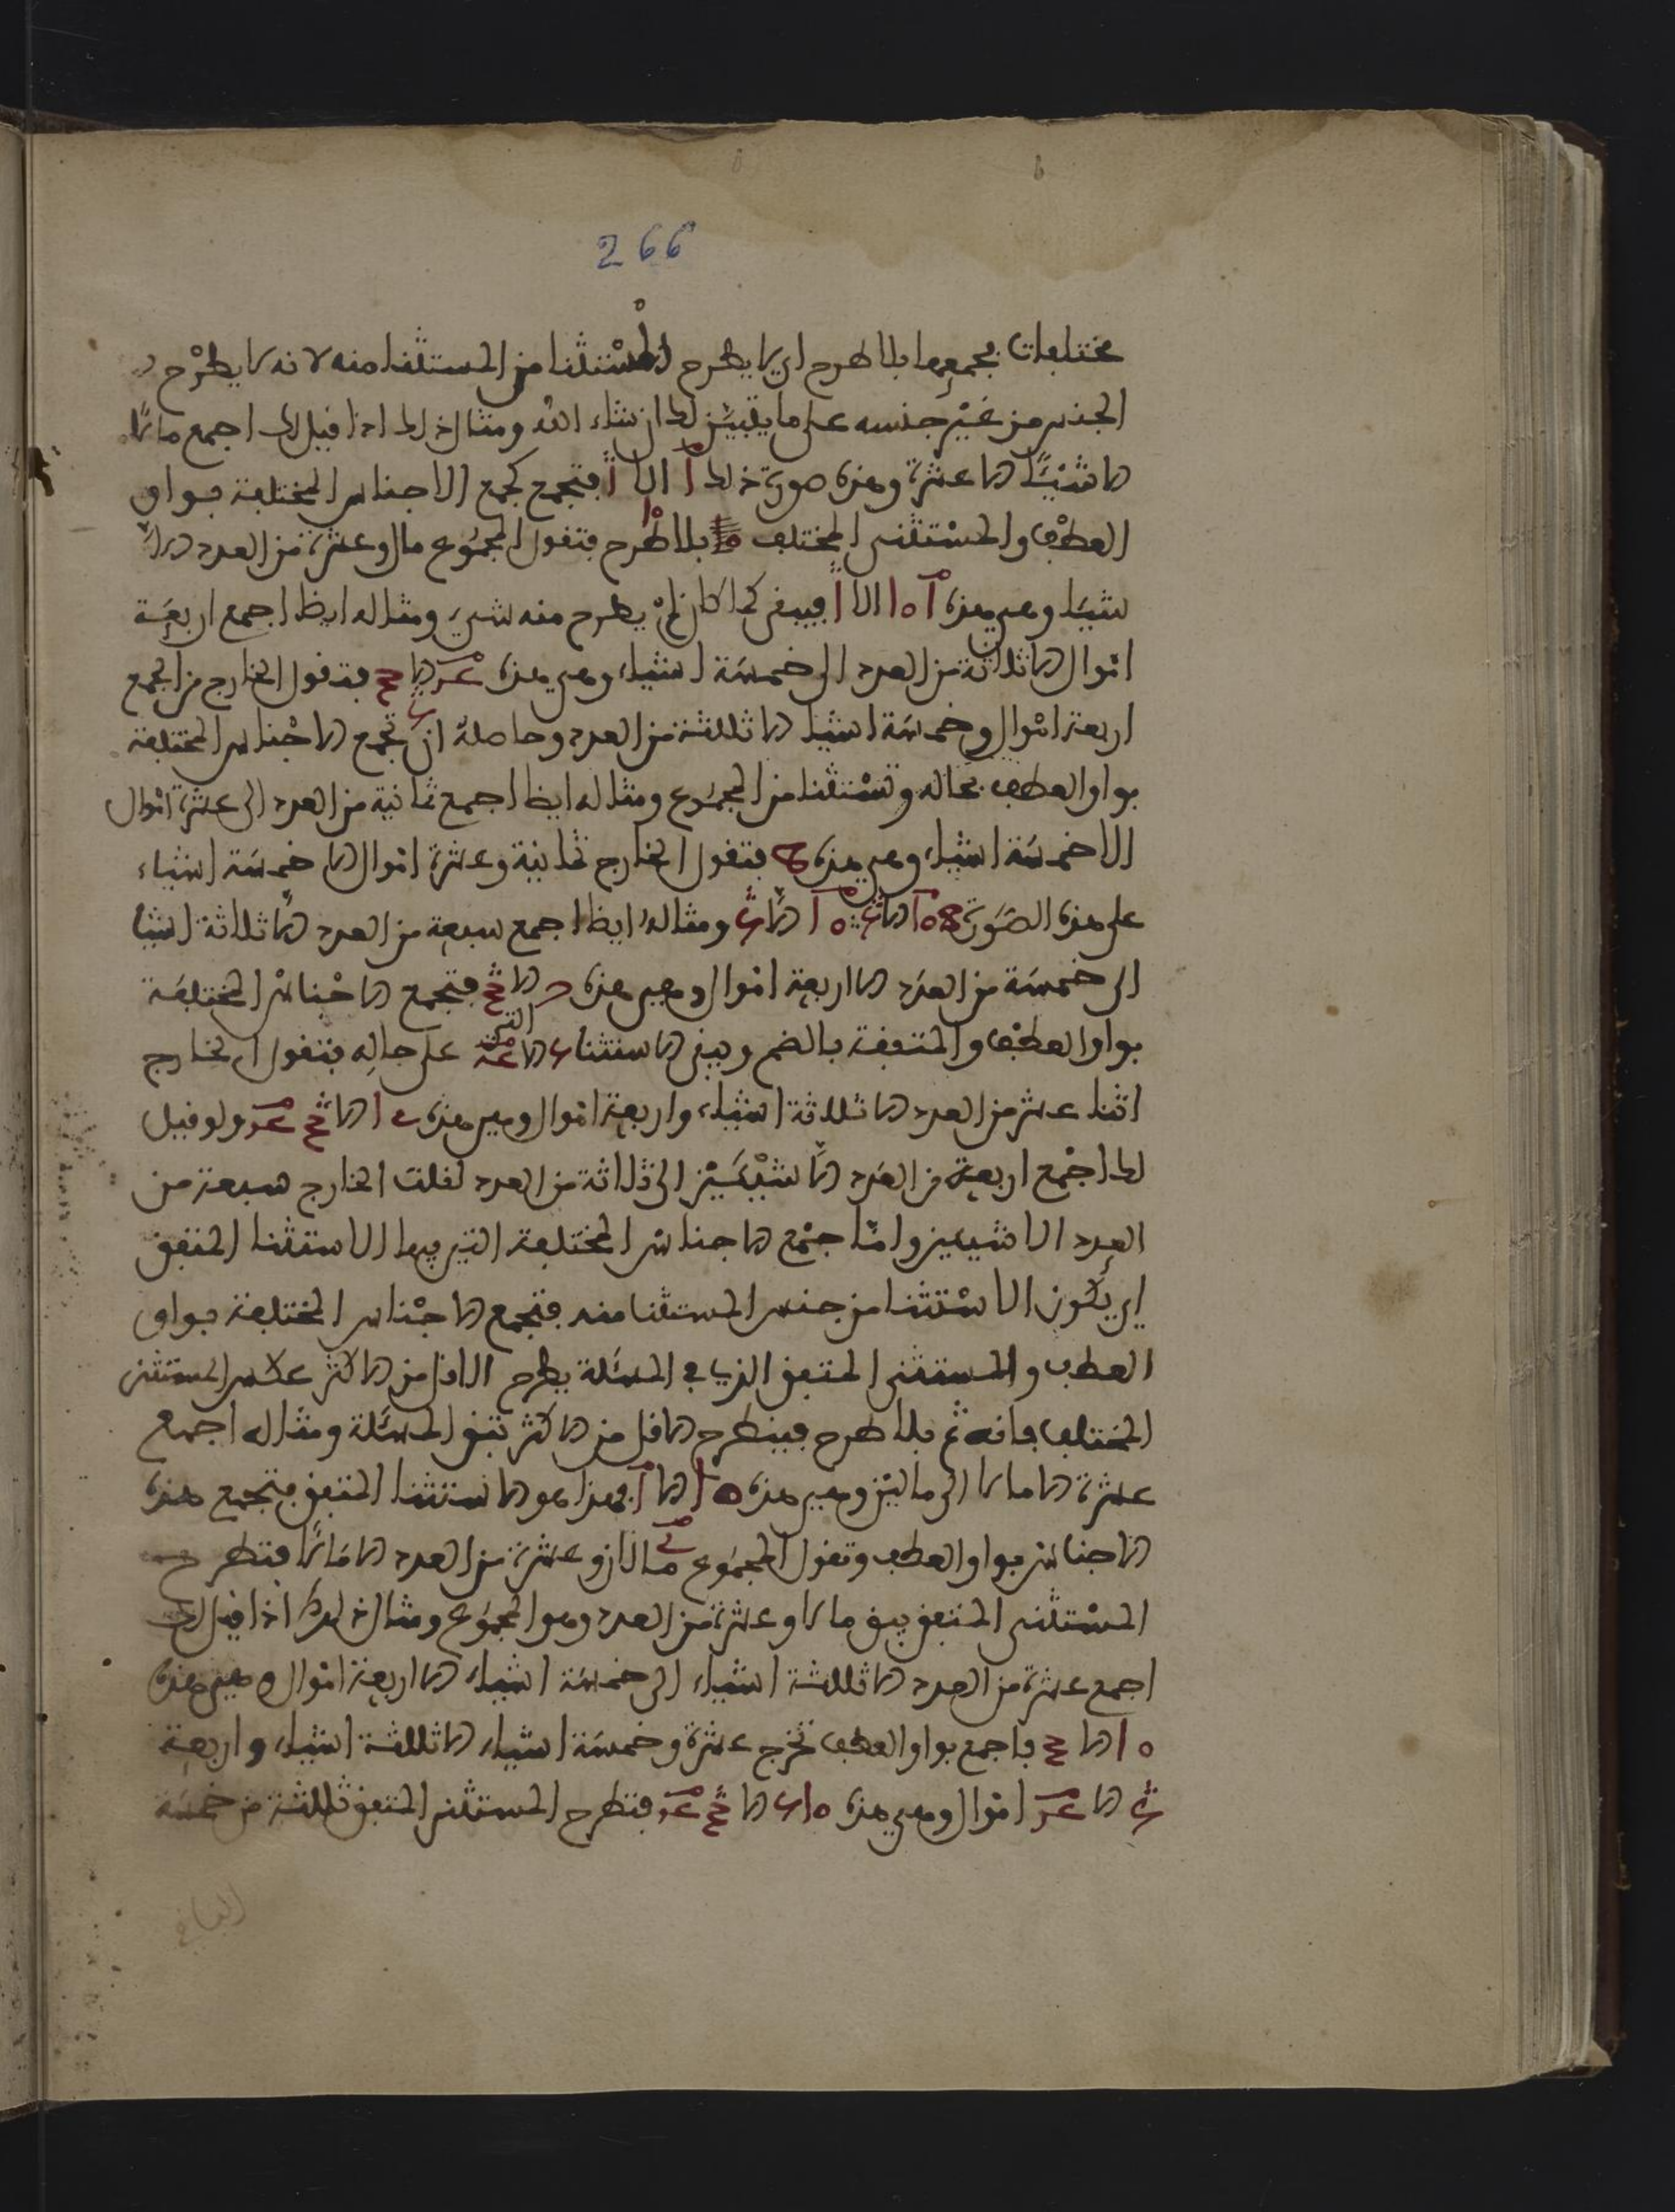 266
مختلفات فجمعها بلا طرح اي لا يطرح المستثنا من المستثنا منه لانه لا يطرح
الجذر من غير جنسه على ما يتبين لك ان شاء الله ومثال ذلك اذا قيل لك اجمع مالا
الا شيئا الى عشرة وهذه صورة ذلك فتجمع كجمع الاجناس المختلفة بواو
العطف والمستثنى المختلف بلا طرح فتقول المجموع مال وعشرة من العدد الا
شيئا وهي هذه فيبقى كما كان لم يطرح منه شيء ومثاله ايظا اجمع اربعة
اموال الا ثلاثة من العدد الى خمسة اشياء وهي هذه فتقول الخارج من الجمع
اربعة اموال وخمسة اشيا الا ثلثة من العدد وحاصله ان تجمع الاجناس المختلفة
بواو العطف بحاله وتستثنا من المجموع ومثاله ايظا اجمع ثمانية من العدد الى عشرة اموال
الا خمسة اشياء وهي هذه فتقول الخارج ثمانية وعشرة اموال الا خمسة اشياء
على هذه الصورة ومثاله ايظا اجمع سبعة من العدد الا ثلاثة اشيا
الى خمسة من العدد الا اربعة اموال وهي هذه فتجمع الاجناس المختلفة
بواو العطف والمتفقة بالضم ويبقى الاستثنا على حاله فتقول الخارج
اثنا عشر من العدد الا ثلاثة اشياء واربعة اموال وهي هذه ولو قيل
لك اجمع اربعة من العدد الا شيئين الى ثلاثة من العدد لقلت الخارج سبعة من
العدد الا شيئين واما جمع الاجناس المختلفة التي فيها الاستثنا المتفق
اي يكون الاستثنا من جنس المستثنا منه فتجمع الاجناس المختلفة بواو
العطف والمستثنى المتفق الذي في المسئلة يطرح الاقل من الاكثر عكس المستثنى
المختلف فانه ثم بلا طرح فينطرح الاقل من الاكثر تبقى المسئلة ومثاله اجمع
عشرة الا مالا الى مالين وهي هذه فهذا هو الاستثنا المتفق فتجمع هذه
الاجناس بواو العطف وتقول المجموع مالان وعشرة من العدد الا مالا فتطرح
المستثنى المتفق يبق مالا وعشرة من العدد وهو المجموع ومثال ذلك اذا قيل لك
اجمع عشرة من العدد الا ثلثة اشياء الى خمسة اشياء الا اربعة اموال وهي هذه
فاجمع بواو العطف تخرج عشرة وخمسة اشياء الا ثلثة اشياء واربعة
اموال وهي هذه فتطرح المستثنى المتفق ثلثة من خمسة